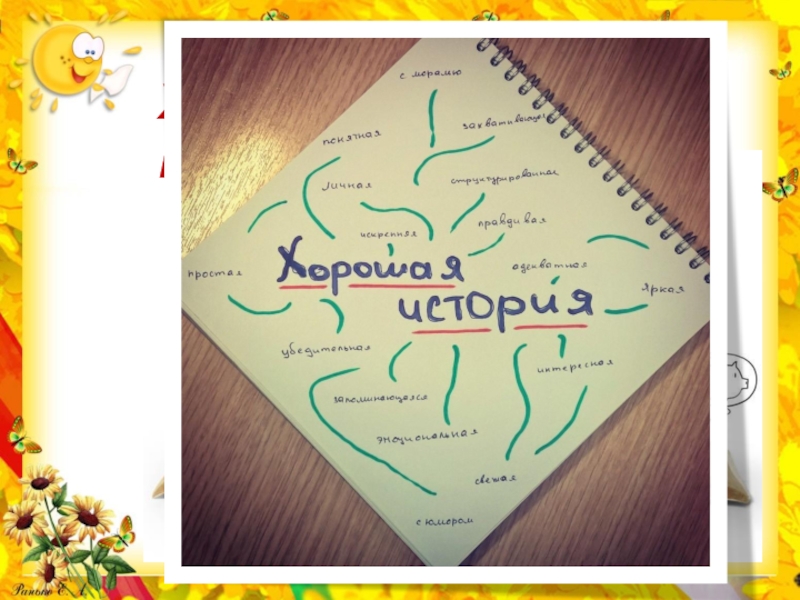 с моралью
захватывающая
понятная
структурированная
личная
правдивая
искренняя
простая
Хорошая
адекватная
яркая
история
убедительная
интересная
запоминающаяся
эмоциональная
свежая
с юмором
Ранько Е. А.